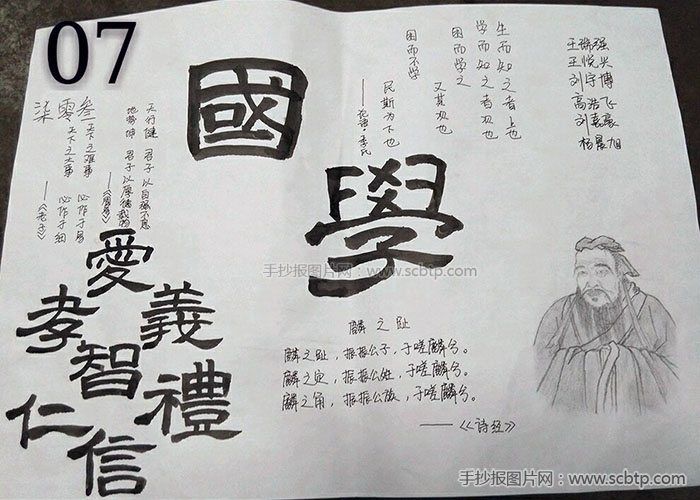 07
國
學
生而知之者上也
学而知之者次也
困而学之
又其次也
困而不学
民斯为下也
——论语·季氏
王瑞强
王悦火
刘宇博
高浩飞
刘嘉豪
杨景旭
天行健 君子以自强不息
地势坤 君子以厚德载物
——《周易》
叁
零
柒
天下之难事 必作于易
天下之大事 必作于细
——《老子》
愛
孝 義
智
仁 禮
信
麟之趾
麟之趾，振振公子，于嗟麟兮。
麟之定，振振公姓，于嗟麟兮。
麟之角，振振公族，于嗟麟兮。
——《诗经》
手抄报图片网：www.scbtp.com
手抄报图片网 www.scbtp.com